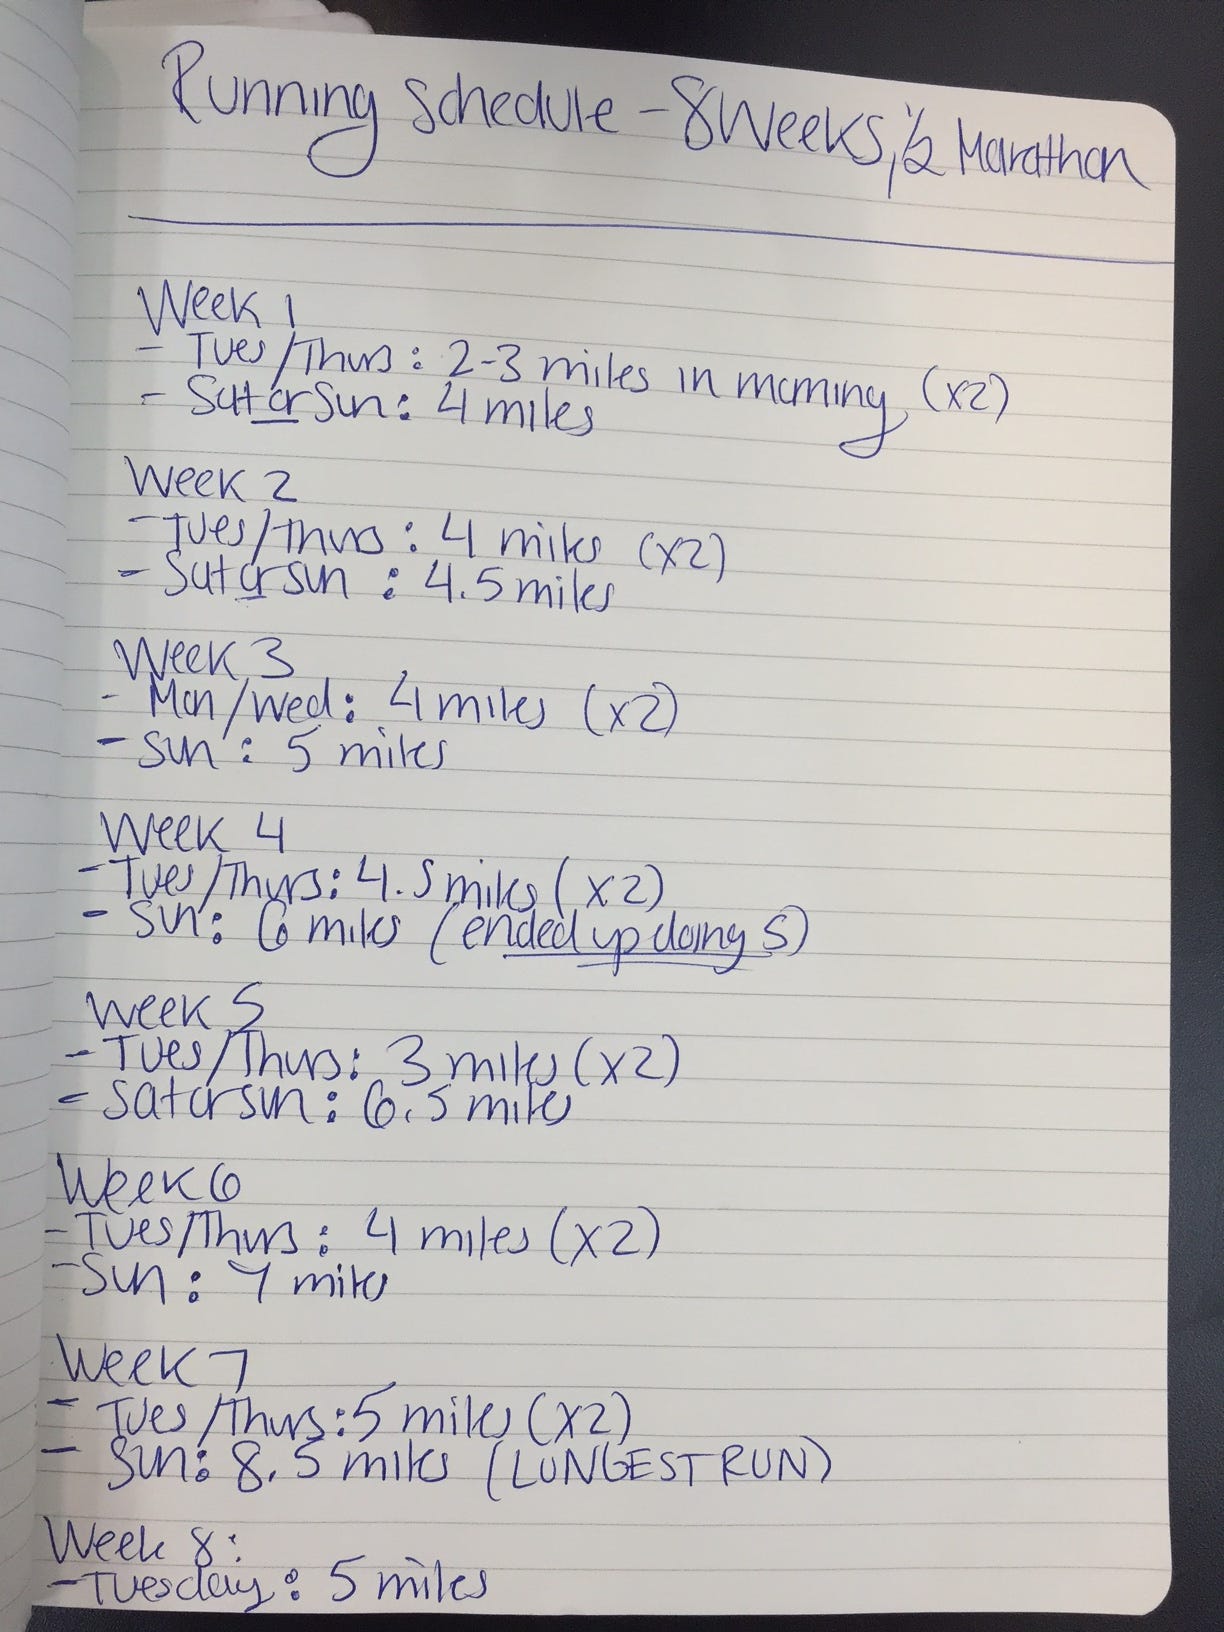 Running Schedule - 8 Weeks, 1/2 Marathon
Week 1
- Tues/Thurs: 2-3 miles in morning (x2)
- Sat or Sun: 4 miles
Week 2
- Tues/Thurs: 4 miles (x2)
- Sat or Sun: 4.5 miles
Week 3
- Mon/Wed: 4 miles (x2)
- Sun: 5 miles
Week 4
- Tues/Thurs: 4.5 miles (x2)
- Sun: 6 miles (ended up doing 5)
Week 5
- Tues/Thurs: 3 miles (x2)
- Sat or Sun: 6.5 miles
Week 6
- Tues/Thurs: 4 miles (x2)
- Sun: 7 miles
Week 7
- Tues/Thurs: 5 miles (x2)
- Sun: 8.5 miles (LONGEST RUN)
Week 8:
- Tuesday: 5 miles